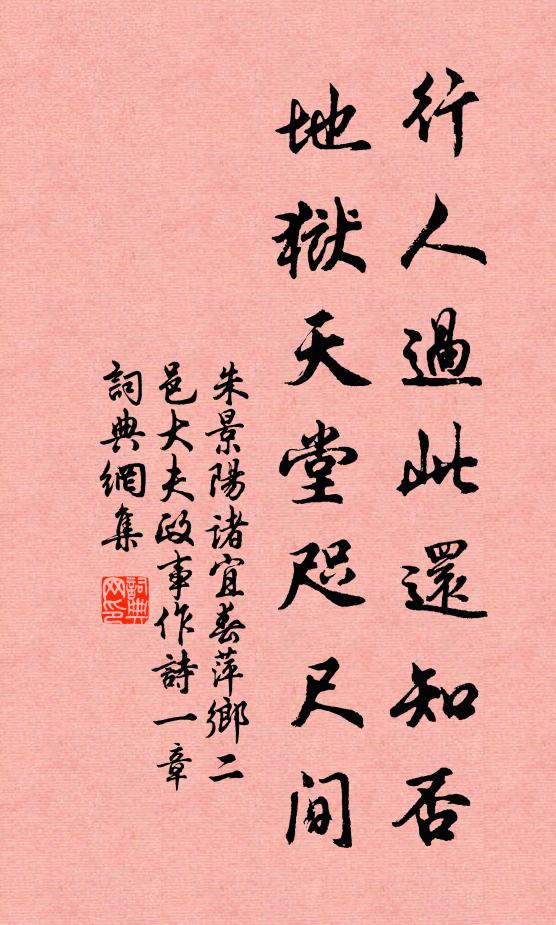 行人過此還知否
地獄天堂咫尺間
朱景陽諸宜春萍鄉二
邑大夫政事作詩一章
詞典網集
詞典網印